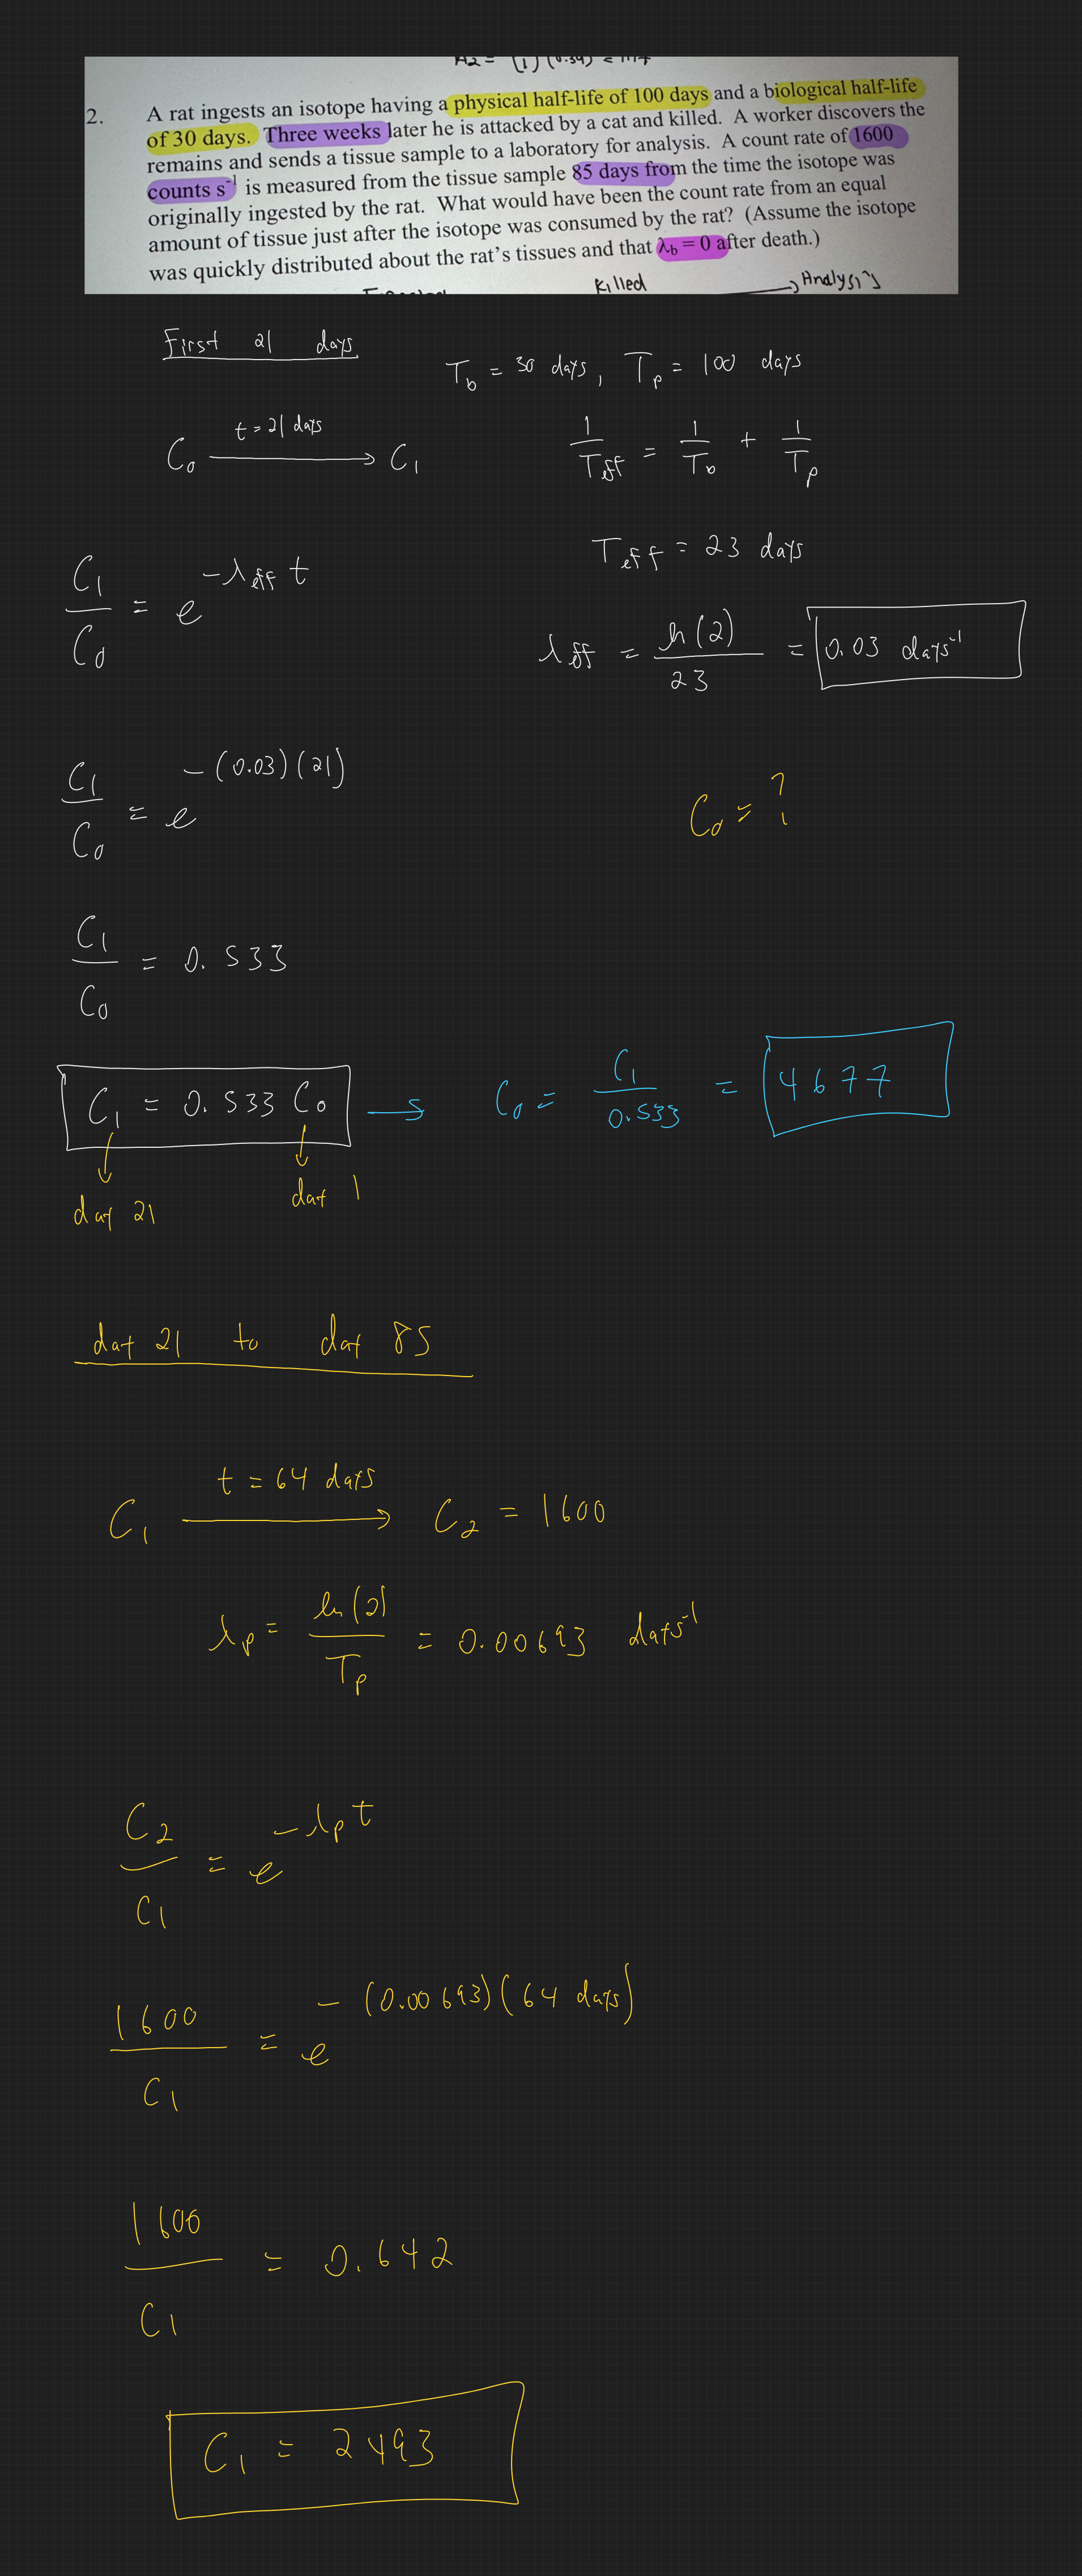 A2 = (1)(0.54)
2. A rat ingests an isotope having a physical half-life of 100 days and a biological half-life
of 30 days. Three weeks later he is attacked by a cat and killed. A worker discovers the
remains and sends a tissue sample to a laboratory for analysis. A count rate of 1600
counts s⁻¹ is measured from the tissue sample 85 days from the time the isotope was
originally ingested by the rat. What would have been the count rate from an equal
amount of tissue just after the isotope was consumed by the rat? (Assume the isotope
was quickly distributed about the rat's tissues and that λb = 0 after death.)
Killed → Analysis
First 21 days
Tb = 30 days, Tp = 100 days
t = 21 days
C0 → C1
1/Teff = 1/Tb + 1/Tp
Teff = 23 days
C1/C0 = e^(-λeff t)
λeff = ln(2)/23 = 0.03 days⁻¹
C1/C0 = e^(-(0.03)(21))
C0 = ?
C1/C0 = 0.533
C1 = 0.533 C0 → C0 = C1/0.533 = 4677
day 21
day 1
day 21 to day 85
t = 64 days
C1 → C2 = 1600
λp = ln(2)/Tp = 0.00693 days⁻¹
C2/C1 = e^(-λp t)
1600/C1 = e^(-(0.00693)(64 days))
1600/C1 = 0.642
C1 = 2493